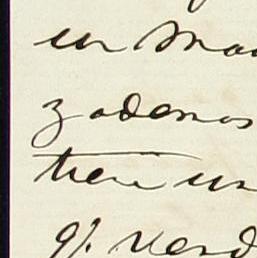 un Ma
zademos
tiene un
q/. vend